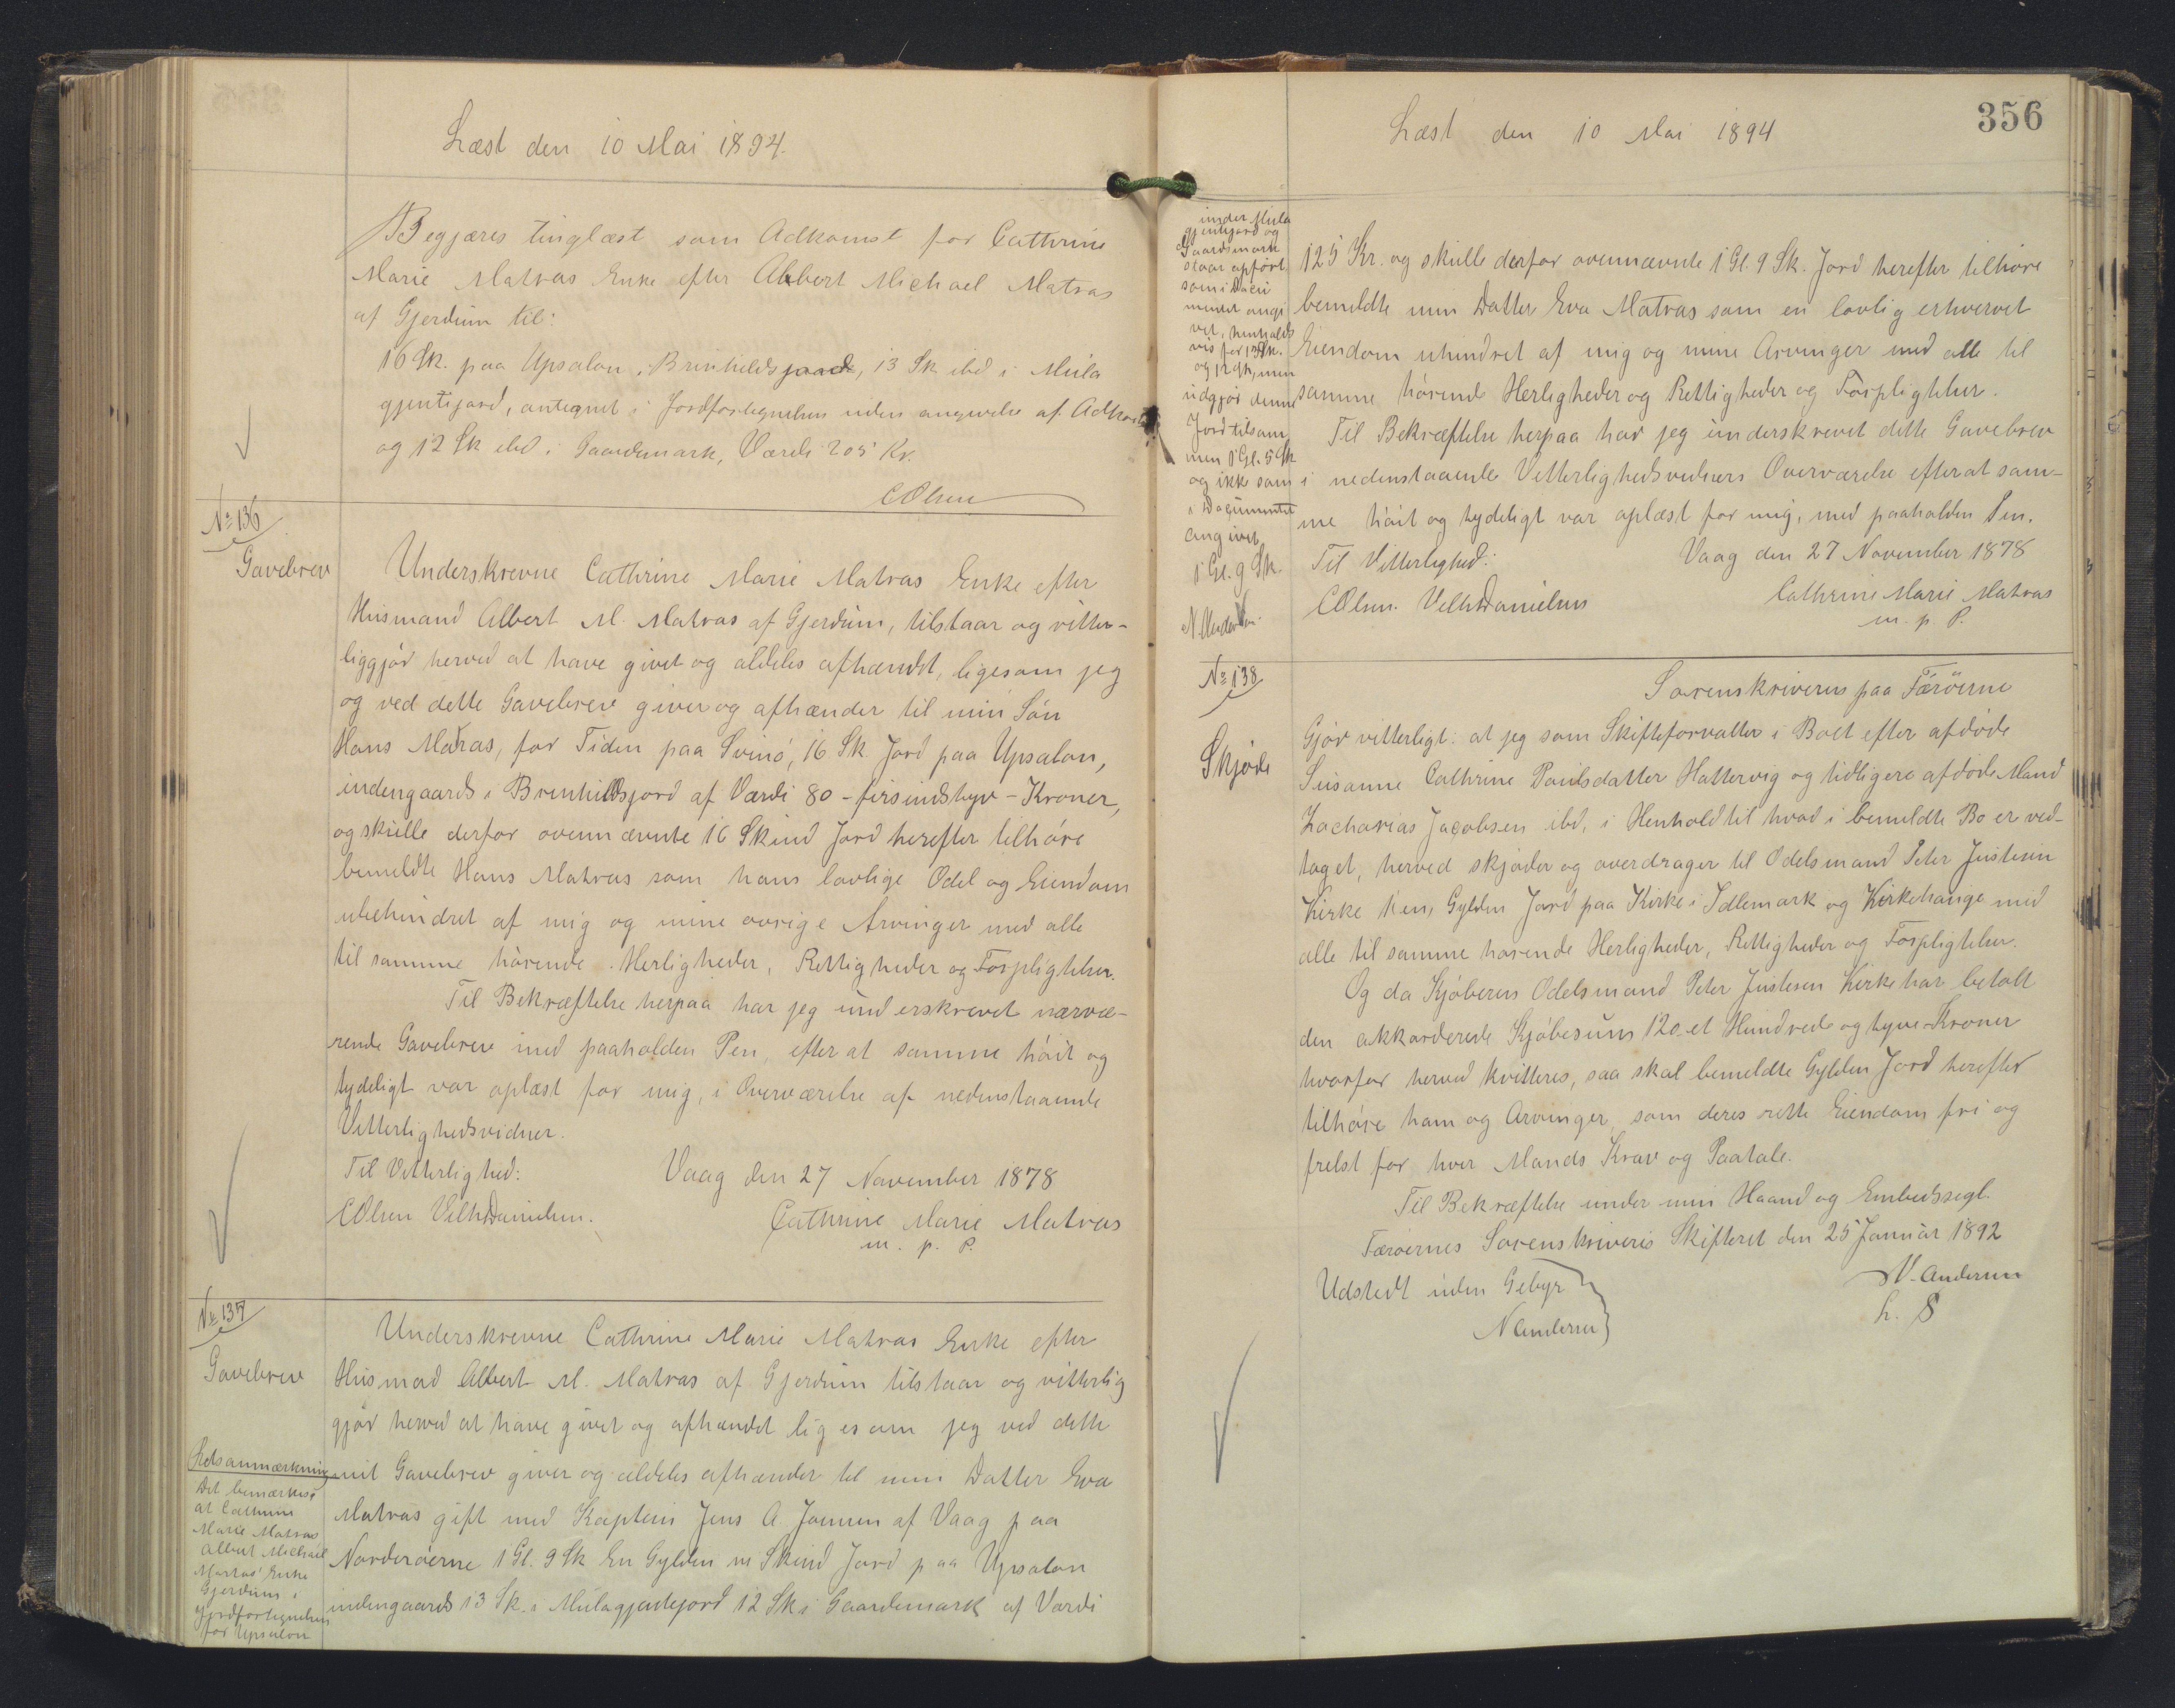 Læst den 10 Mai 1894.
Begjæres tinglæst som Adkomst for Cathrine
Marie Matras Enke efter Albert Michael Matras
af Gjerdum til:
16 Sk. paa Upsalon, Brinhildsjord, 13 Sk ibd i Mula
gjentejord, antegnet i Jordfortegnelsen uden angivelse af Adkomst
og 12 Sk ibd i Gaardsmark, Værdi 205 Kr.
COlsen
№ 136
Gavebrev
Underskrevne Cathrine Marie Matras Enke efter
Husmand Albert M. Matras af Gjerdum, tilstaar og vitter-
liggjør herved at have givet og aldeles afhændt, ligesom jeg
og ved dette Gavebrev giver og afhænder til min Søn
Hans Matras, for Tiden paa Svinø, 16 Sk Jord paa Upsalon,
indengaards i Brinhildsjord af Værdi 80 - firsindstyv - Kroner,
og skulle derfor ovennævnte 16 Skind Jord herefter tilhøre
bemeldte Hans Matras som hans lovlige Odel og Eiendom
ubehindret af mig og mine øvrige Arvinger med alle
til samme hørende Herligheder, Rettigheder og Forpligtelser.
Til Bekræftelse herpaa har jeg underskrevet nærvæ-
rende Gavebrev med paaholden Pen, efter at samme høit og
tydeligt var oplæst for mig, i Overværelse af nedenstaaende
Vitterlighedsvidner.
Til Vitterlighed:
Vaag den 27 November 1878
COlsen VilhDanielsen.
Cathrine Marie Matras
m. p. P.
№ 137
Gavebrev
Underskrevne Cathrine Marie Matras Enke efter
Husmad Albert M. Matras af Gjerdum tilstaar og vitterlig
gjør herved at have givet og afhændet ligesom jeg ved dette
mit Gavebrev giver og aldeles afhænder til min Datter Eva
Matras gift med Kaptein Jens A. Joensen af Vaag paa
Norderøerne 1 Gl. 9 Sk En Gylden ni Skind Jord paa Upsalon
indengaards 13 Sk. i Mulagjentejord 12 Sk i Gaardsmark af Værdi
Retsanmærkning
Det bemærkes
at Cathrine
Marie Matras
Albert Michael
Matras' Enke
Gjerdum i
Jordfortegnelsen
for Upsalon
356
Læst den 10 Mai 1894
under Mula
gjentejord og
Gaardsmark
staar opført
som i Docu
mentet angi
vet, henholds
vis for 13 Sk.
og 12 Sk, men
udgjør denne
Jord tilsam
men 1 Gl. 5 Sk
og ikk som
i Documentet
angivet
1 Gl. 9 Sk.
N. Andersen.
125 Kr. og skulle derfor ovennævnte 1 Gl. 9 Sk. Jord herefter tilhøre
bemeldte min Datter Eva Matras som en lovlig erhvervet
Eiendom uhindret af mig og mine Arvinger med alle til
samme hørende Herligheder og Rettigheder og Forpligtelser.
Til Bekræftelse herpaa har jeg underskrevet dette Gavebrev
i nedenstaaende Vitterlighedsvidners Overværelse efter at sam-
me høit og tydeligt var oplæst for mig, med paaholden Pen.
Til Vitterlighed:
Vaag den 27 November 1878
COlsen. VilhDanielsen
Cathrine Marie Matras
m. p. P.
№ 138
Skjøde
Sorenskriveren paa Færøerne
Gjør vitterligt: at jeg som Skifteforvalter i Boet efter afdøde
Susanne Cathrine Poulsdatter Hattervig og tidligere afdøde Mand
Zacharias Jacobsen ibd, i Henhold til hvad i bemeldte Bo er ved-
taget, herved skjøder og overdrager til Odelsmand Peter Justesen
Kirke 1 en, Gylden Jord paa Kirke i Idlemark og Kirkehauge med
alle til samme hørende Herligheder, Rettigheder og Forpligtelser.
Og da Kjøberen Odelsmand Peter Justesen Kirke har betalt
den akkorderede Kjøbesum 120 et Hundrede og tyve Kroner
hvorfor herved kvitteres, saa skal bemeldte Gylden Jord herefter
tilhøre ham og Arvinger, som deres rette Eiendom fri og
frelst for hver Mands Krav og Paatale.
Til Bekræftelse under min Haand og Embedssegl.
Færøernes Sorenskriveris Skifteret den 25 Januar 1892
Udstedt uden Gebyr
N. Andersen
NAndersen
L. S